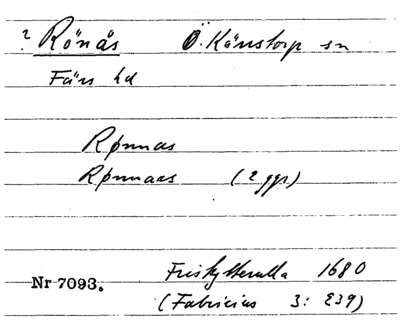 ? Rönås Ö. Kärrstorp sn
Färs hd
Rønnas
Rønnaas (2 ggr)
Friskytterulla 1680
Nr 7093.
(Fabricius 3: 239)